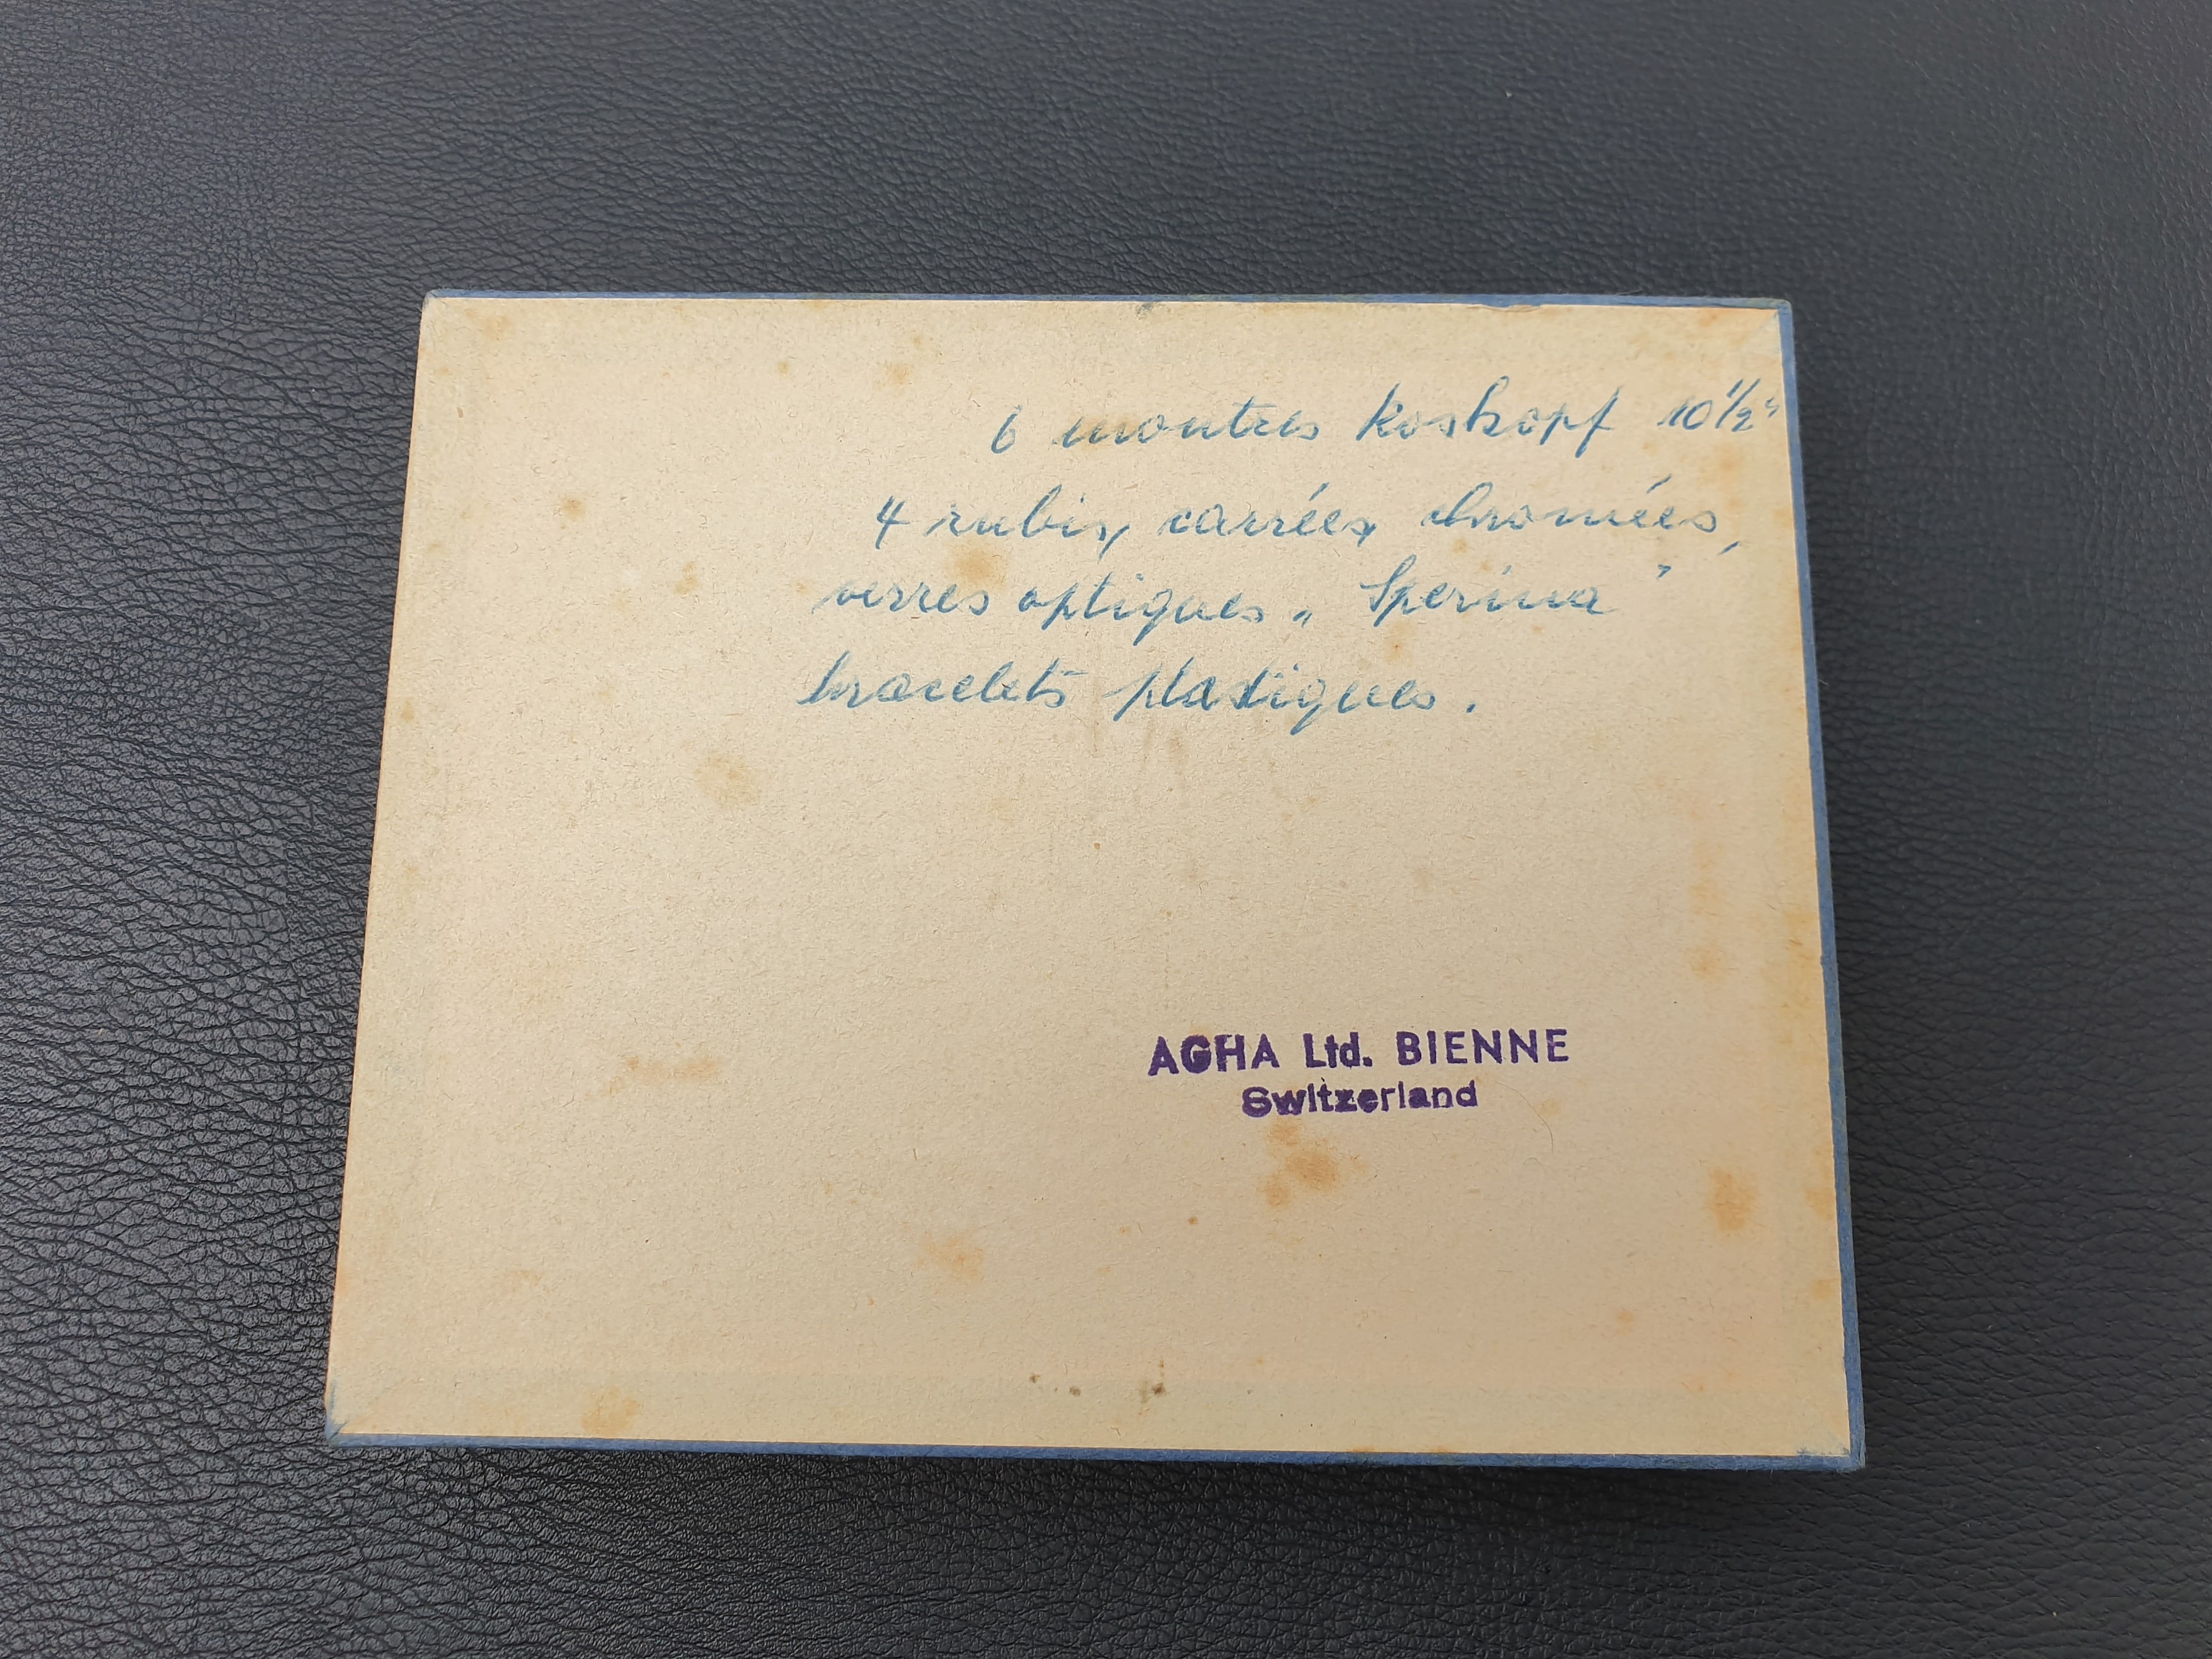 6 montres Roskopf 10 1/2"
4 rubis, carrées, chromées,
verres optiques „ Sperina "
bracelets plastiques.
AGHA Ltd. BIENNE
Switzerland